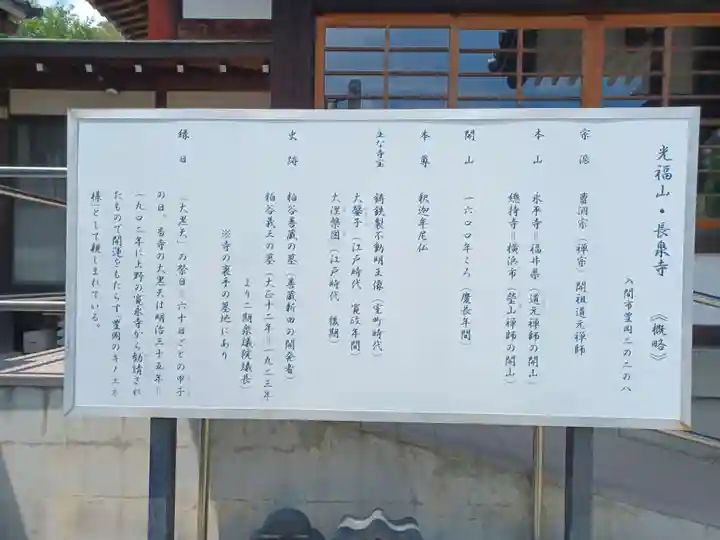 光福山・長泉寺 《概略》
入間市豊岡二の二の八
宗派 曹洞宗（禅宗）開祖道元禅師
本山 永平寺＝福井県（道元禅師の開山）
總持寺＝横浜市（瑩山禅師の開山）
開山 一六〇〇年ころ（慶長年間）
本尊 釈迦牟尼仏
主な寺宝 鋳鉄製不動明王像（室町時代）
大磬子（江戸時代 寛政年間）
大涅槃図（江戸時代 後期）
史跡 粕谷善蔵の墓（善蔵新田の開発者）
粕谷義三の墓（大正十二年＝一九二三年
より二期衆議院議長）
※寺の裏手の墓地にあり
縁日 「大黒天」の祭日＝六十日ごとの甲子
の日。当寺の大黒天は明治三十五年＝
一九〇二年に上野の寛永寺から勧請され
たもので開運をもたらす「豊岡のキノエネ
様」として親しまれている。